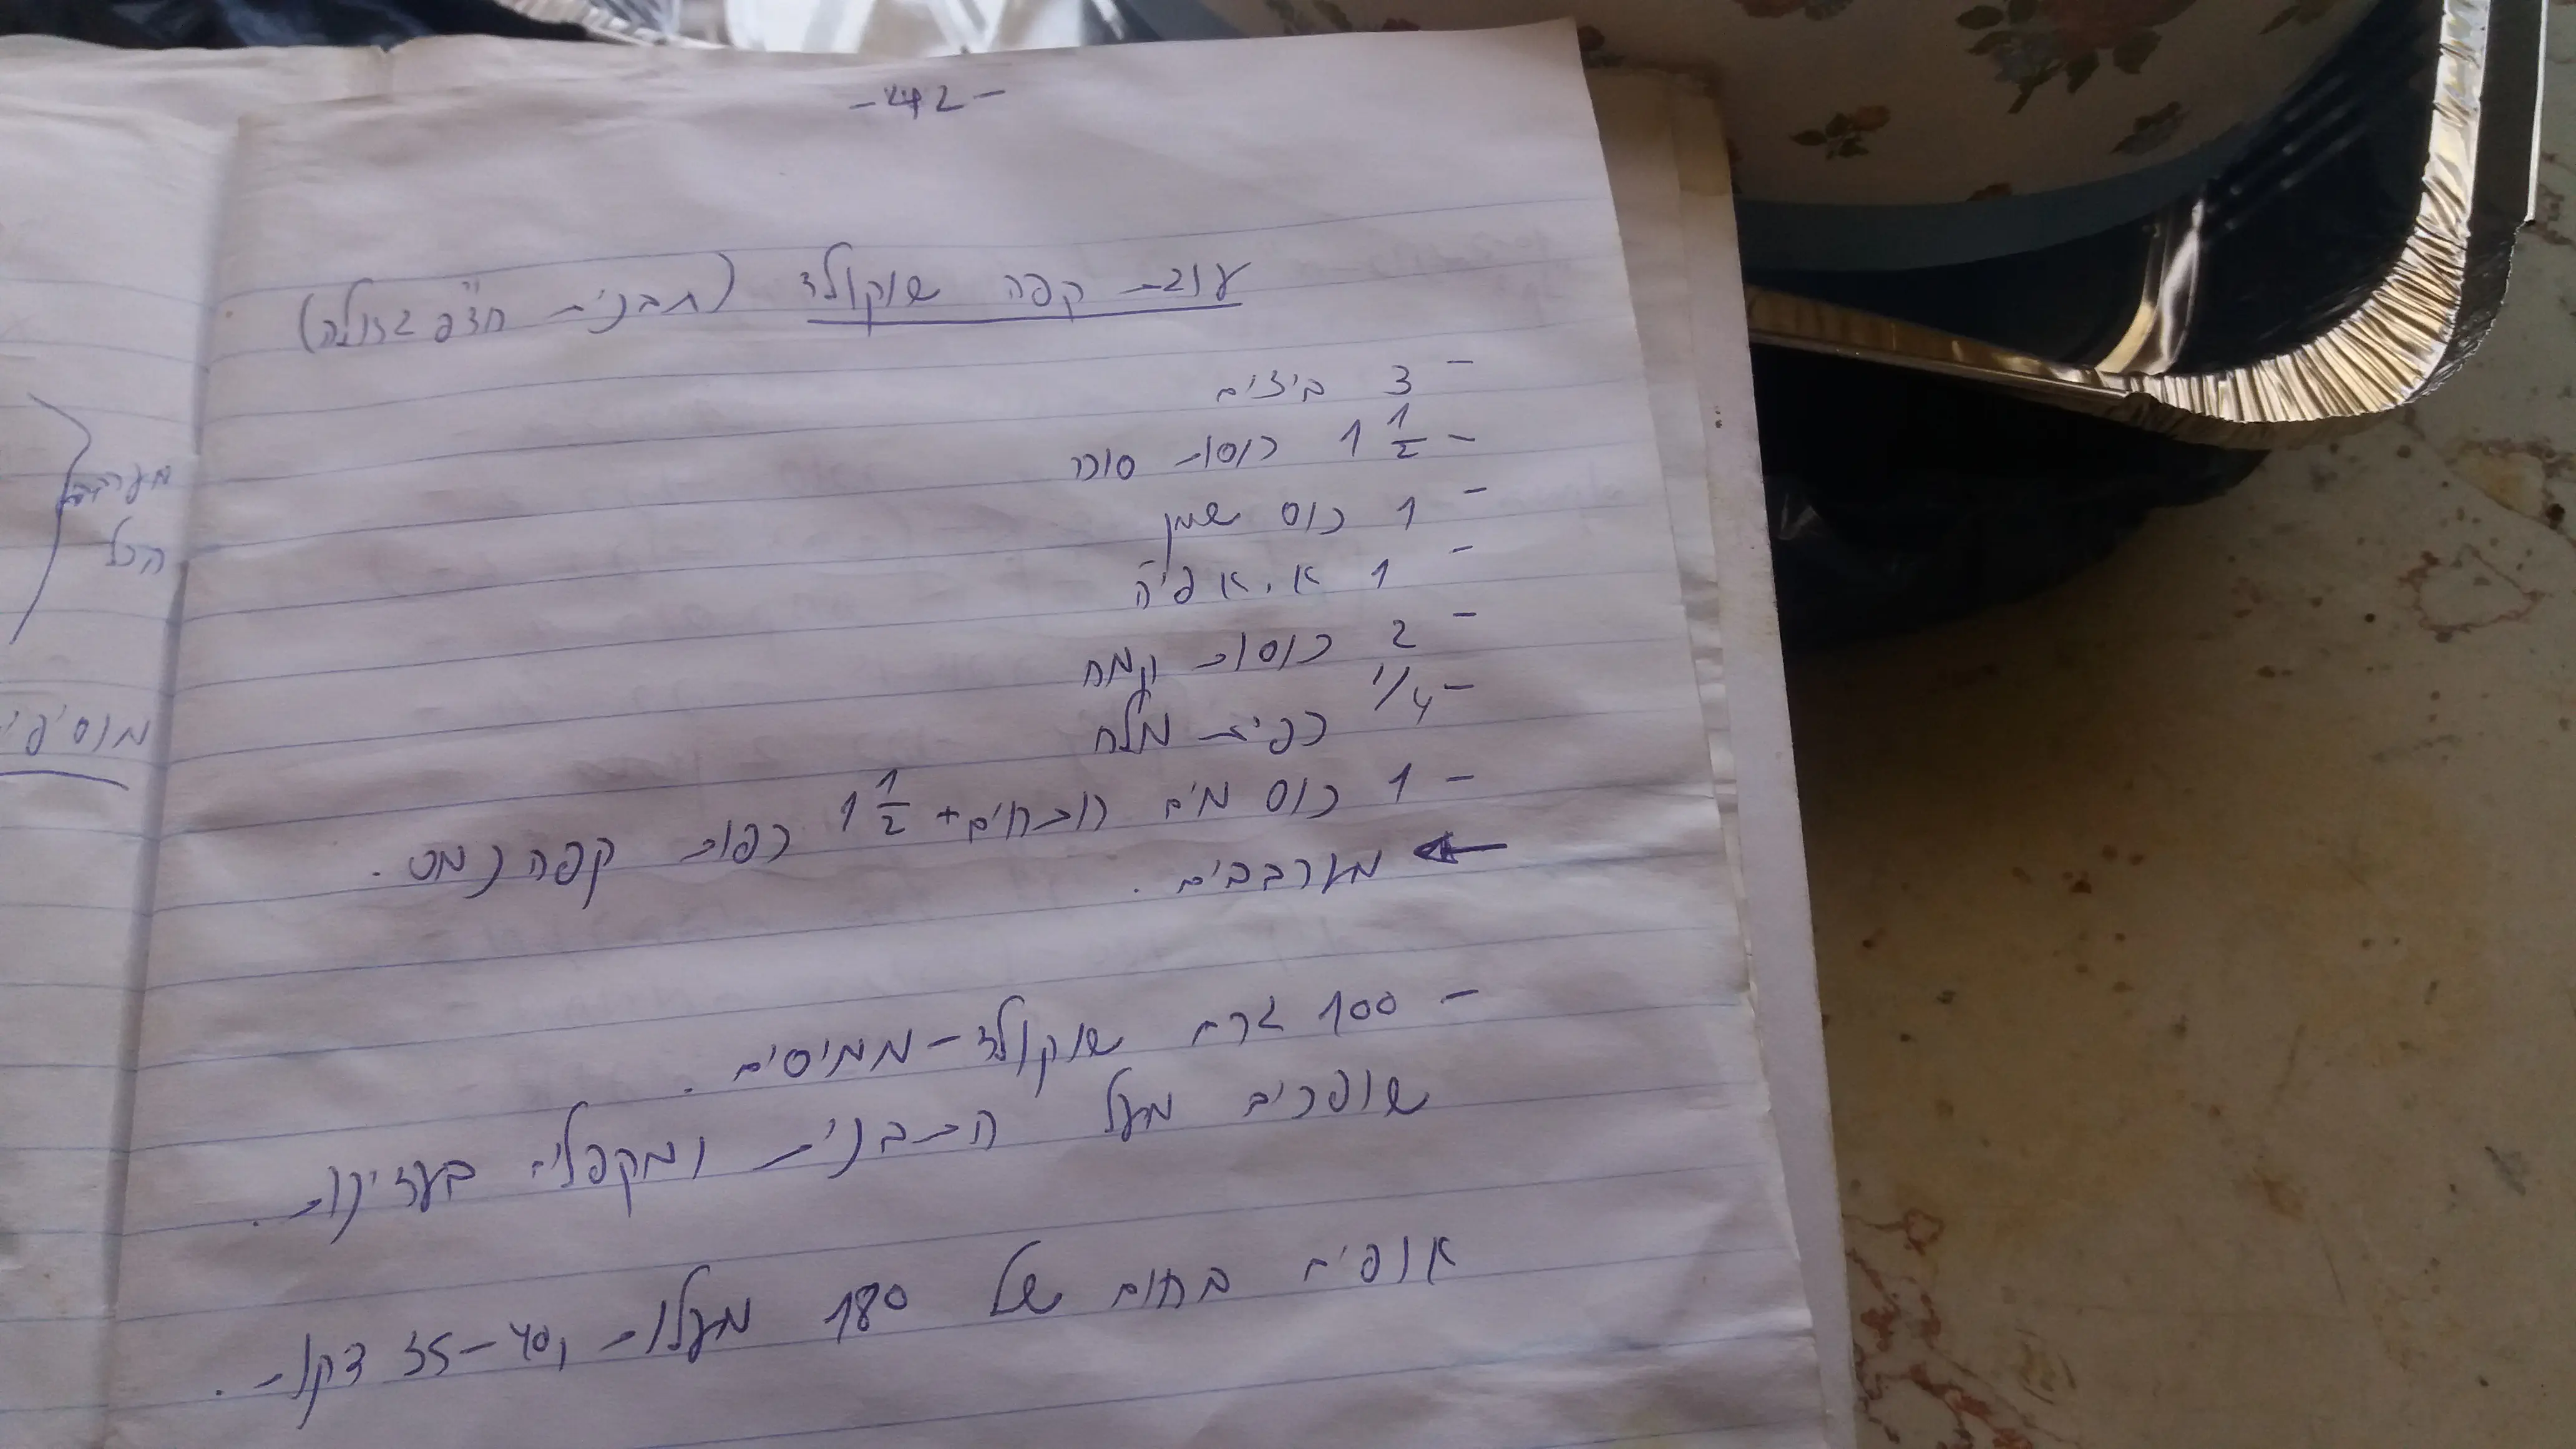 -42-
עוגת קפה שוקולד (תבנית חד"פ גדולה)
- 3 ביצים
- 1 1/2 כוסות סוכר
- 1 כוס שמן
- 1 א. אפיה
- 2 כוסות קמח
- 1/4 כפית מלח
- 1 כוס מים רותחים + 1 1/2 כפות קפה נמס.
← מערבבים.
- 100 גרם שוקולד - ממיסים.
שופכים מעל התבנית ומקפלים בעדינות.
אופים בחום של 180 מעלות, 35-40 דקות.
הכל